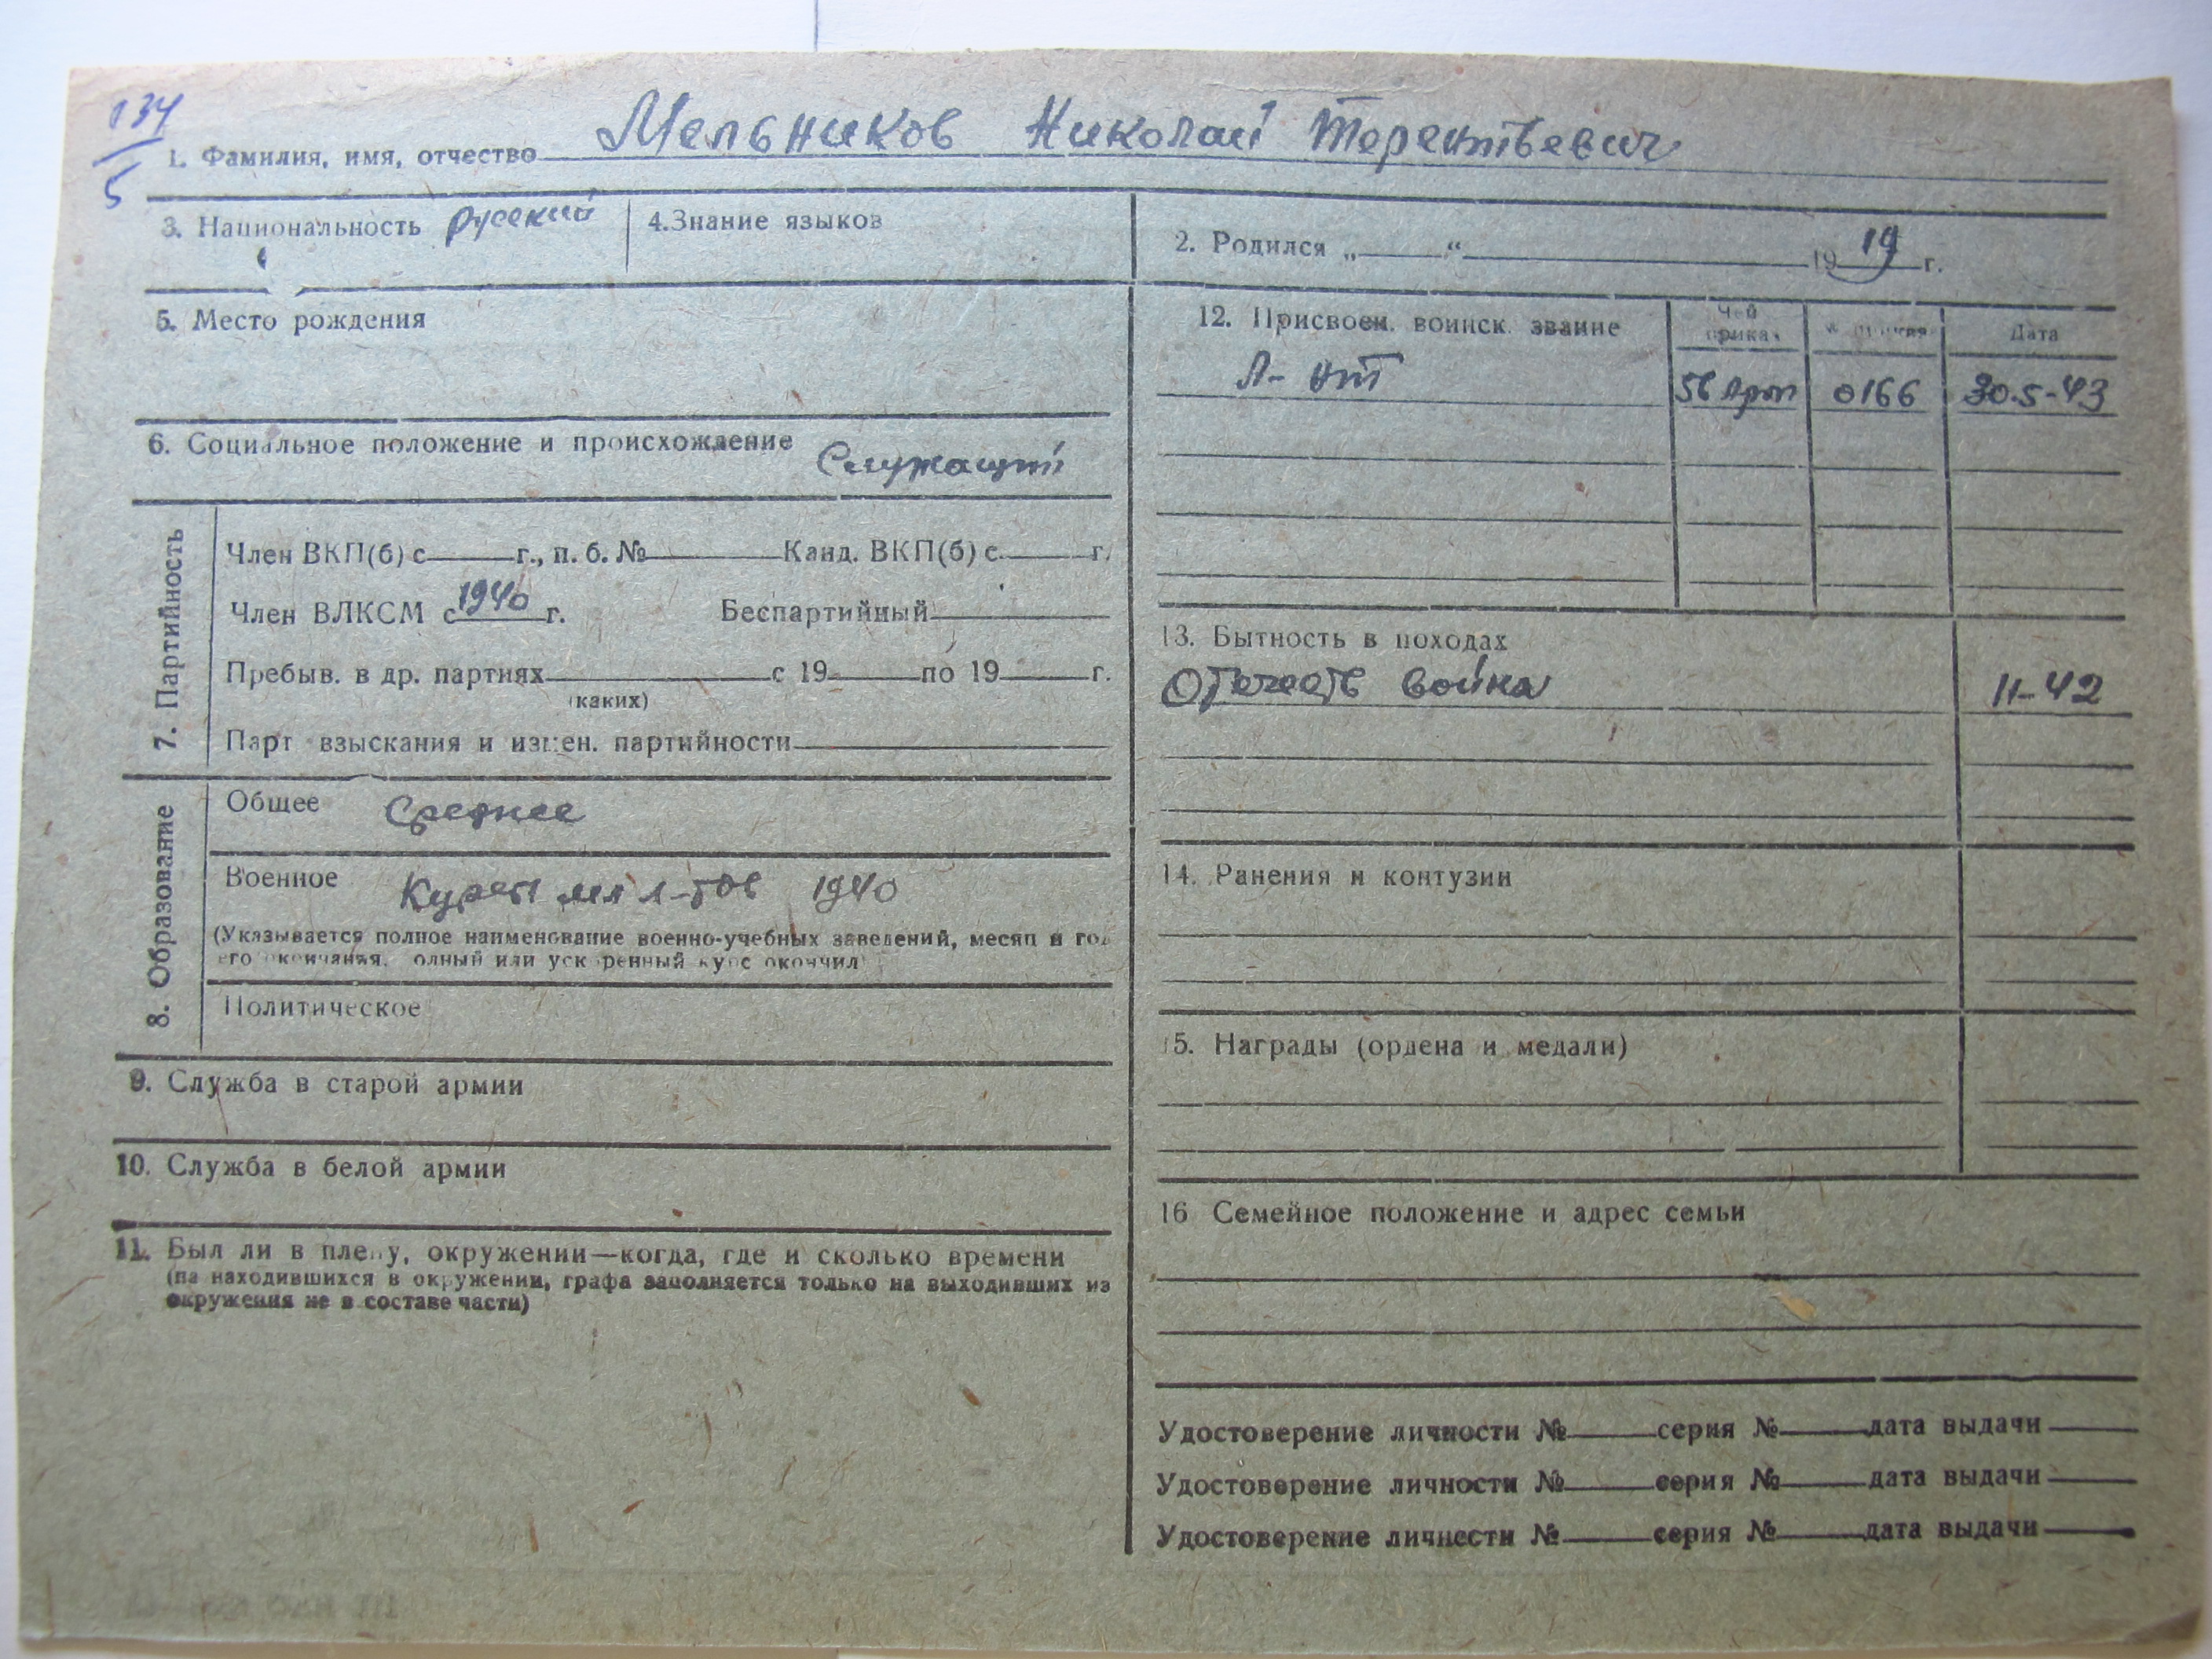 134
5
1. Фамилия, имя, отчество Мельников Николай Терентьевич
3. Национальность русский
4. Знание языков
2. Родился „ “ 1919 г.
5. Место рождения
6. Социальное положение и происхождение Служащий
7. Партийность
Член ВКП(б) с г., п. б. № Канд. ВКП(б) с г.
Член ВЛКСМ с 1940 г. Беспартийный
Пребыв. в др. партиях с 19 по 19 г.
(каких)
Парт взыскания и измен. партийности
8. Образование
Общее Среднее
Военное Курсы мл л-тов 1940
(Указывается полное наименование военно-учебных заведений, месяц и год
его окончания. полный или ускоренный курс окончил)
Политическое
9. Служба в старой армии
10. Служба в белой армии
11. Был ли в плену, окружении—когда, где и сколько времени
(на находившихся в окружении, графа заполняется только на выходивших из
окружения не в составе части)
12. Присвоен. воинск. звание Чей приказ № приказа Дата
Л-нт 56 Арм 0166 30.5-43
13. Бытность в походах
Отечеств война 11-42
14. Ранения и контузии
15. Награды (ордена и медали)
16 Семейное положение и адрес семьи
Удостоверение личности № серия № дата выдачи
Удостоверение личности № серия № дата выдачи
Удостоверение личности № серия № дата выдачи